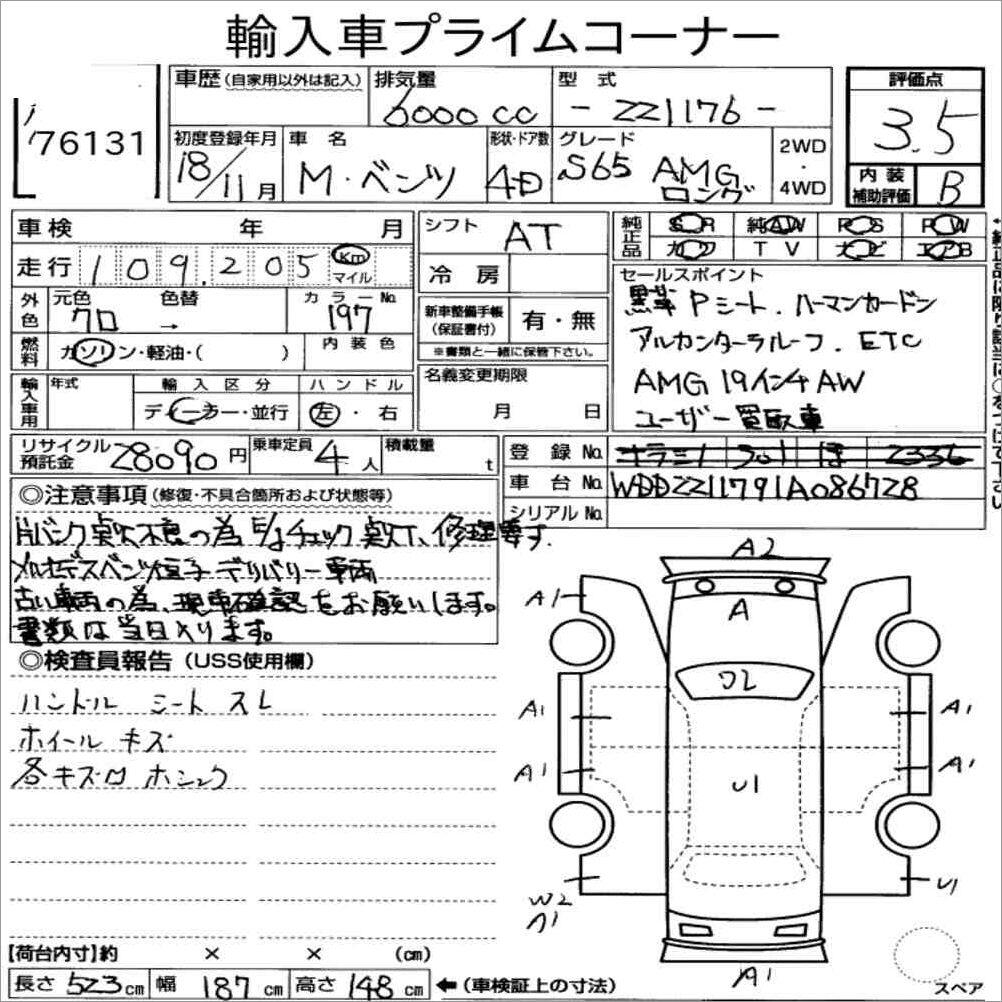 輸入車プライムコーナー
76131
車歴(自家用以外は記入)
排気量
6000 cc
型式
- 221176 -
評価点
3.5
初度登録年月
18/11月
車名
M・ベンツ
形状・ドア数
4D
グレード
S65 AMG
ロング
2WD
・
4WD
内装
補助評価
B
車検 年 月
シフト
AT
純正品
SR 純AW PS PW
カワ TV ナビ エアB
走行 109,205 Km
マイル
冷房
セールスポイント
黒革 Pシート. ハーマンカードン
アルカンターラルーフ. ETC
AMG 19インチAW
ユーザー買取車
外色
元色
クロ
色替
→
カラーNo.
197
新車整備手帳
(保証書付)
有・無
※書類と一緒に保管下さい。
燃料
ガソリン・軽油・( )
内装色
輸入車用
年式
輸入区分
ディーラー・並行
ハンドル
左・右
名義変更期限
月 日
リサイクル
預託金
28090円
乗車定員
4人
積載量
t
登録No.
301 ほ 2336
車台No.
WDD2211791A086728
シリアルNo.
◎注意事項(修復・不具合箇所および状態等)
片バンク 失火不良の為 E/gチェック 点灯、修理要す.
メルセデスベンツ デリバリー車両
古い車両の為、現車確認をお願いします。
書類は当日入ります。
◎検査員報告(USS使用欄)
ハンドル シート スレ
ホイール キズ
各キズロ ホシュウ
A2
A
A1
A1
A1
A1
A1
U1
W2
U1
A1
スペア
【荷台内寸】約 × × (cm)
長さ 523cm 幅 187cm 高さ 148cm ←(車検証上の寸法)